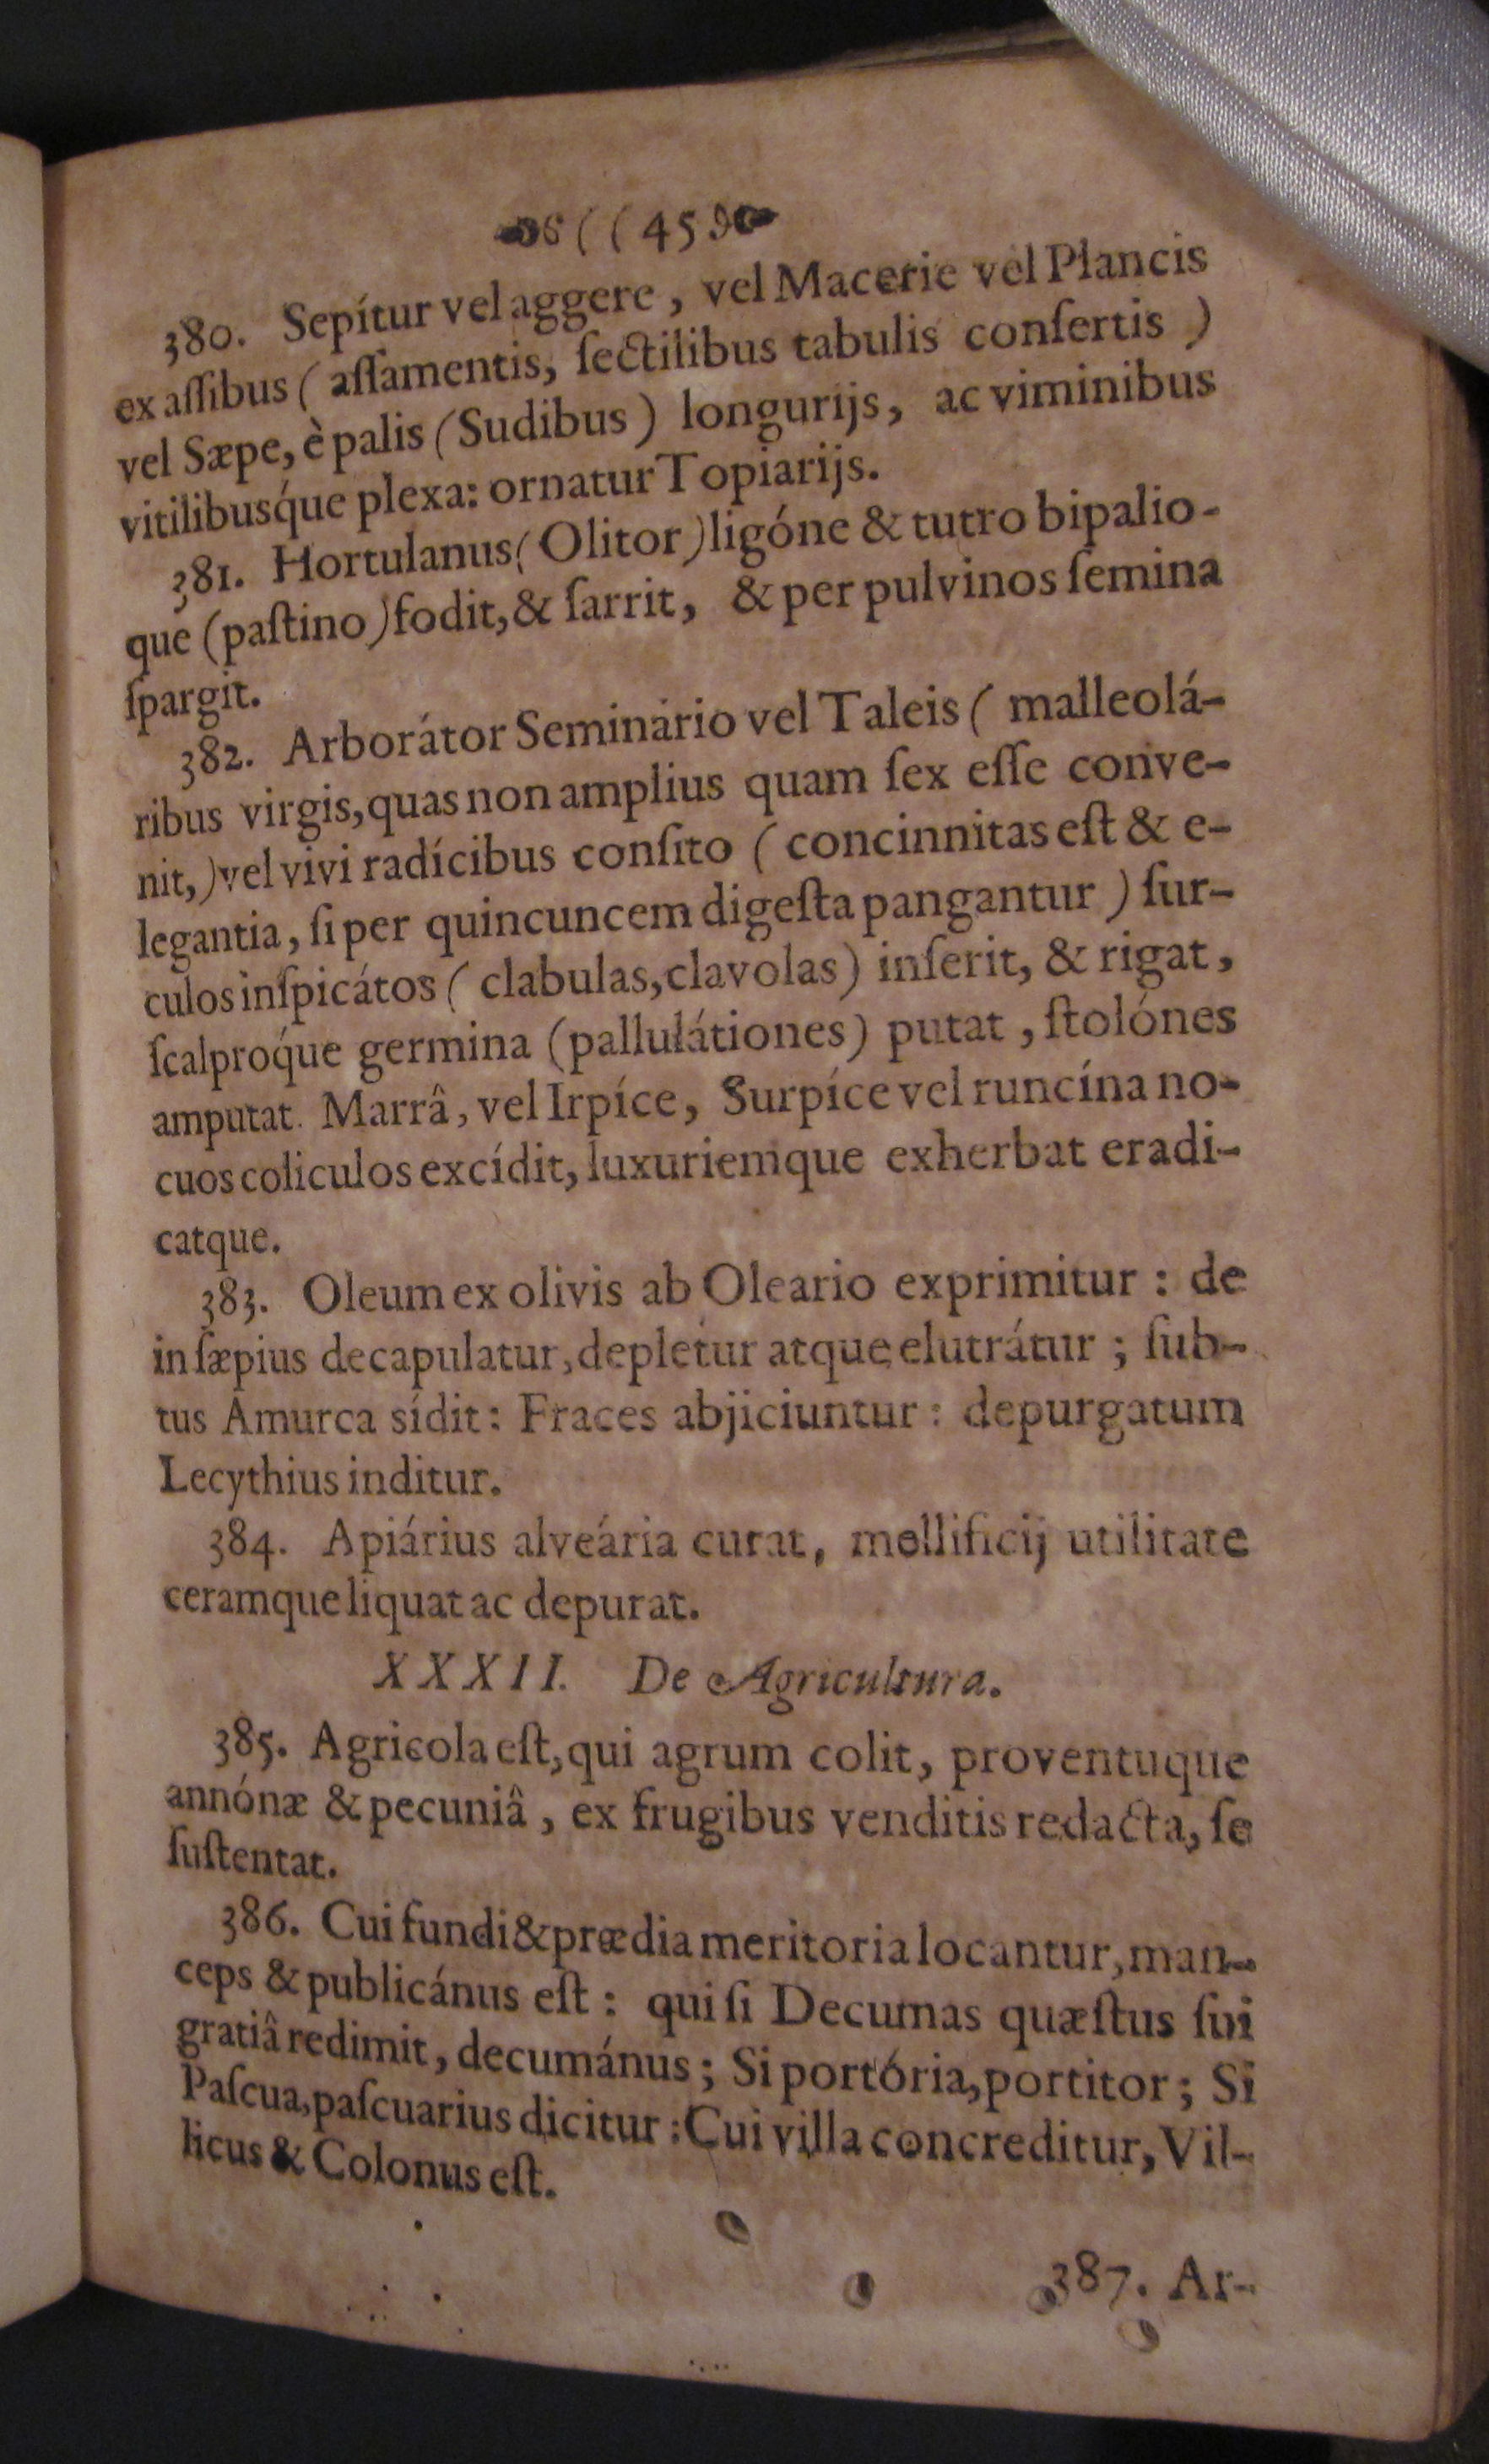 ((45
380. Sepítur vel aggere, vel Macerie vel Plancis
ex aſſibus (aſſamentis, ſectilibus tabulis conſertis)
vel Sæpe, è palis (Sudibus) longurijs, ac viminibus
vitilibusq́ue plexa: ornatur Topiarijs.
381. Hortulanus (Olitor) ligóne & tutro bipalio-
que (paſtino) fodit, & ſarrit, & per pulvinos ſemina
ſpargit.
382. Arborátor Seminário vel Taleis (malleolá-
ribus virgis, quas non amplius quam ſex eſſe conve-
nit,) vel vivi radícibus conſito (concinnitas eſt & e-
legantia, ſi per quincuncem digeſta pangantur) ſur-
culos inſpicátos (clabulas, clavolas) inſerit, & rigat,
ſcalproq́ue germina (pallulátiones) putat, ſtolónes
amputat. Marrâ, vel Irpíce, Surpíce vel runcína no-
cuos coliculos excídit, luxuriemque exherbat eradi-
catque.
383. Oleum ex olivis ab Oleario exprimitur: de
in ſæpius decapulatur, depletur atque elutrátur; ſub-
tus Amurca sídit: Fraces abjiciuntur: depurgatum
Lecythius inditur.
384. Apiárius alveária curat, mellificij utilitate
ceramque liquat ac depurat.
XXXII. De Agricultura.
385. Agricola eſt, qui agrum colit, proventuque
annónæ & pecuniâ, ex frugibus venditis redacta, ſe
ſuſtentat.
386. Cui fundi & prædia meritoria locantur, man-
ceps & publicánus eſt: qui ſi Decumas quæſtus ſui
gratiâ redimit, decumánus; Si portória, portitor; Si
Paſcua, paſcuarius dicitur: Cui villa concreditur, Vil-
licus & Colonus eſt.
387. Ar-